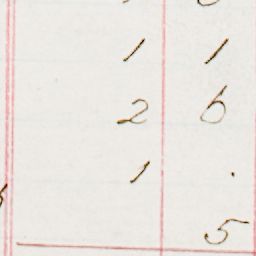 1 1
2 6
1 .
5